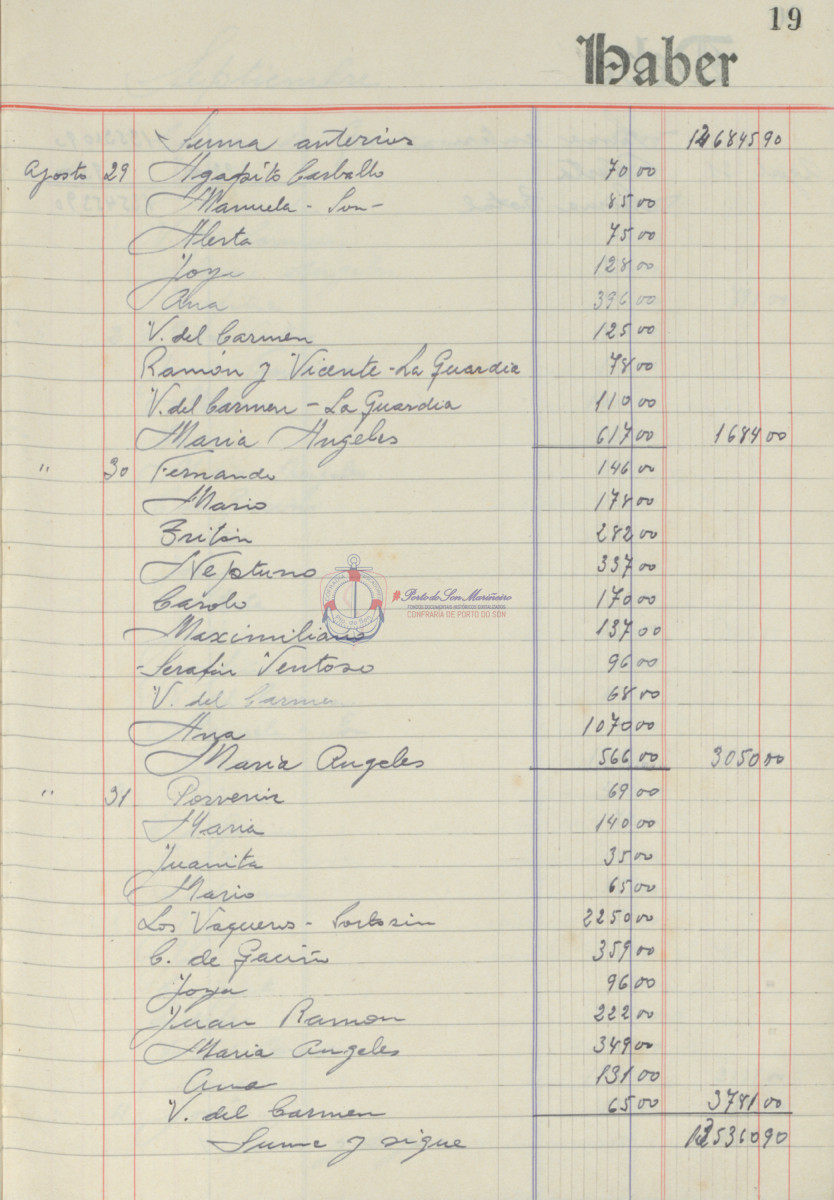 19
Haber
Suma anterior 12684590
Agosto 29 Agapito Carballo 7000
Manuela - Son - 8500
Alerta 7500
Joya 12800
Ana 39600
V. del Carmen 12500
Ramón y Vicente - La Guardia 7800
V. del Carmen - La Guardia 11000
Maria Angeles 61700 168400
" 30 Fernando 14600
Mario 17800
Tritón 28200
Neptuno 33700
Carolo 17000
Maximiliano 13700
Serafin Ventoso 9600
V. del Carmen 6800
Ana 107000
Maria Angeles 56600 305000
" 31 Porvenir 6900
Maria 14000
Juanita 3500
Mario 6500
Los Vaqueros - Portosin 225000
C. de 35900
Joya 9600
Juan Ramon 22200
Maria Angeles 34900
Ana 13100
V. del Carmen 6500 378100
Suma y sigue 13536090
#Porto do Son Mariñeiro
FONDOS DOCUMENTAIS HISTÓRICOS DIXITALIZADOS
CONFRARÍA DE PORTO DO SON